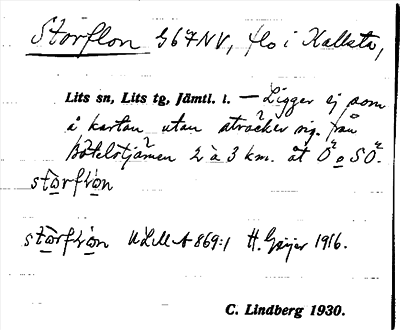 Storflon 967NV, flo i Kallsta,
Lits sn, Lits tg, Jämtl. l. — Ligger ej som
å kartan utan sträcker sig från
Bötelstjärnen 2 à 3 km. åt Ö o SÖ.
stōrflōn
stōrflōn ULMA 869:1 H. Geijer 1916.
C. Lindberg 1930.